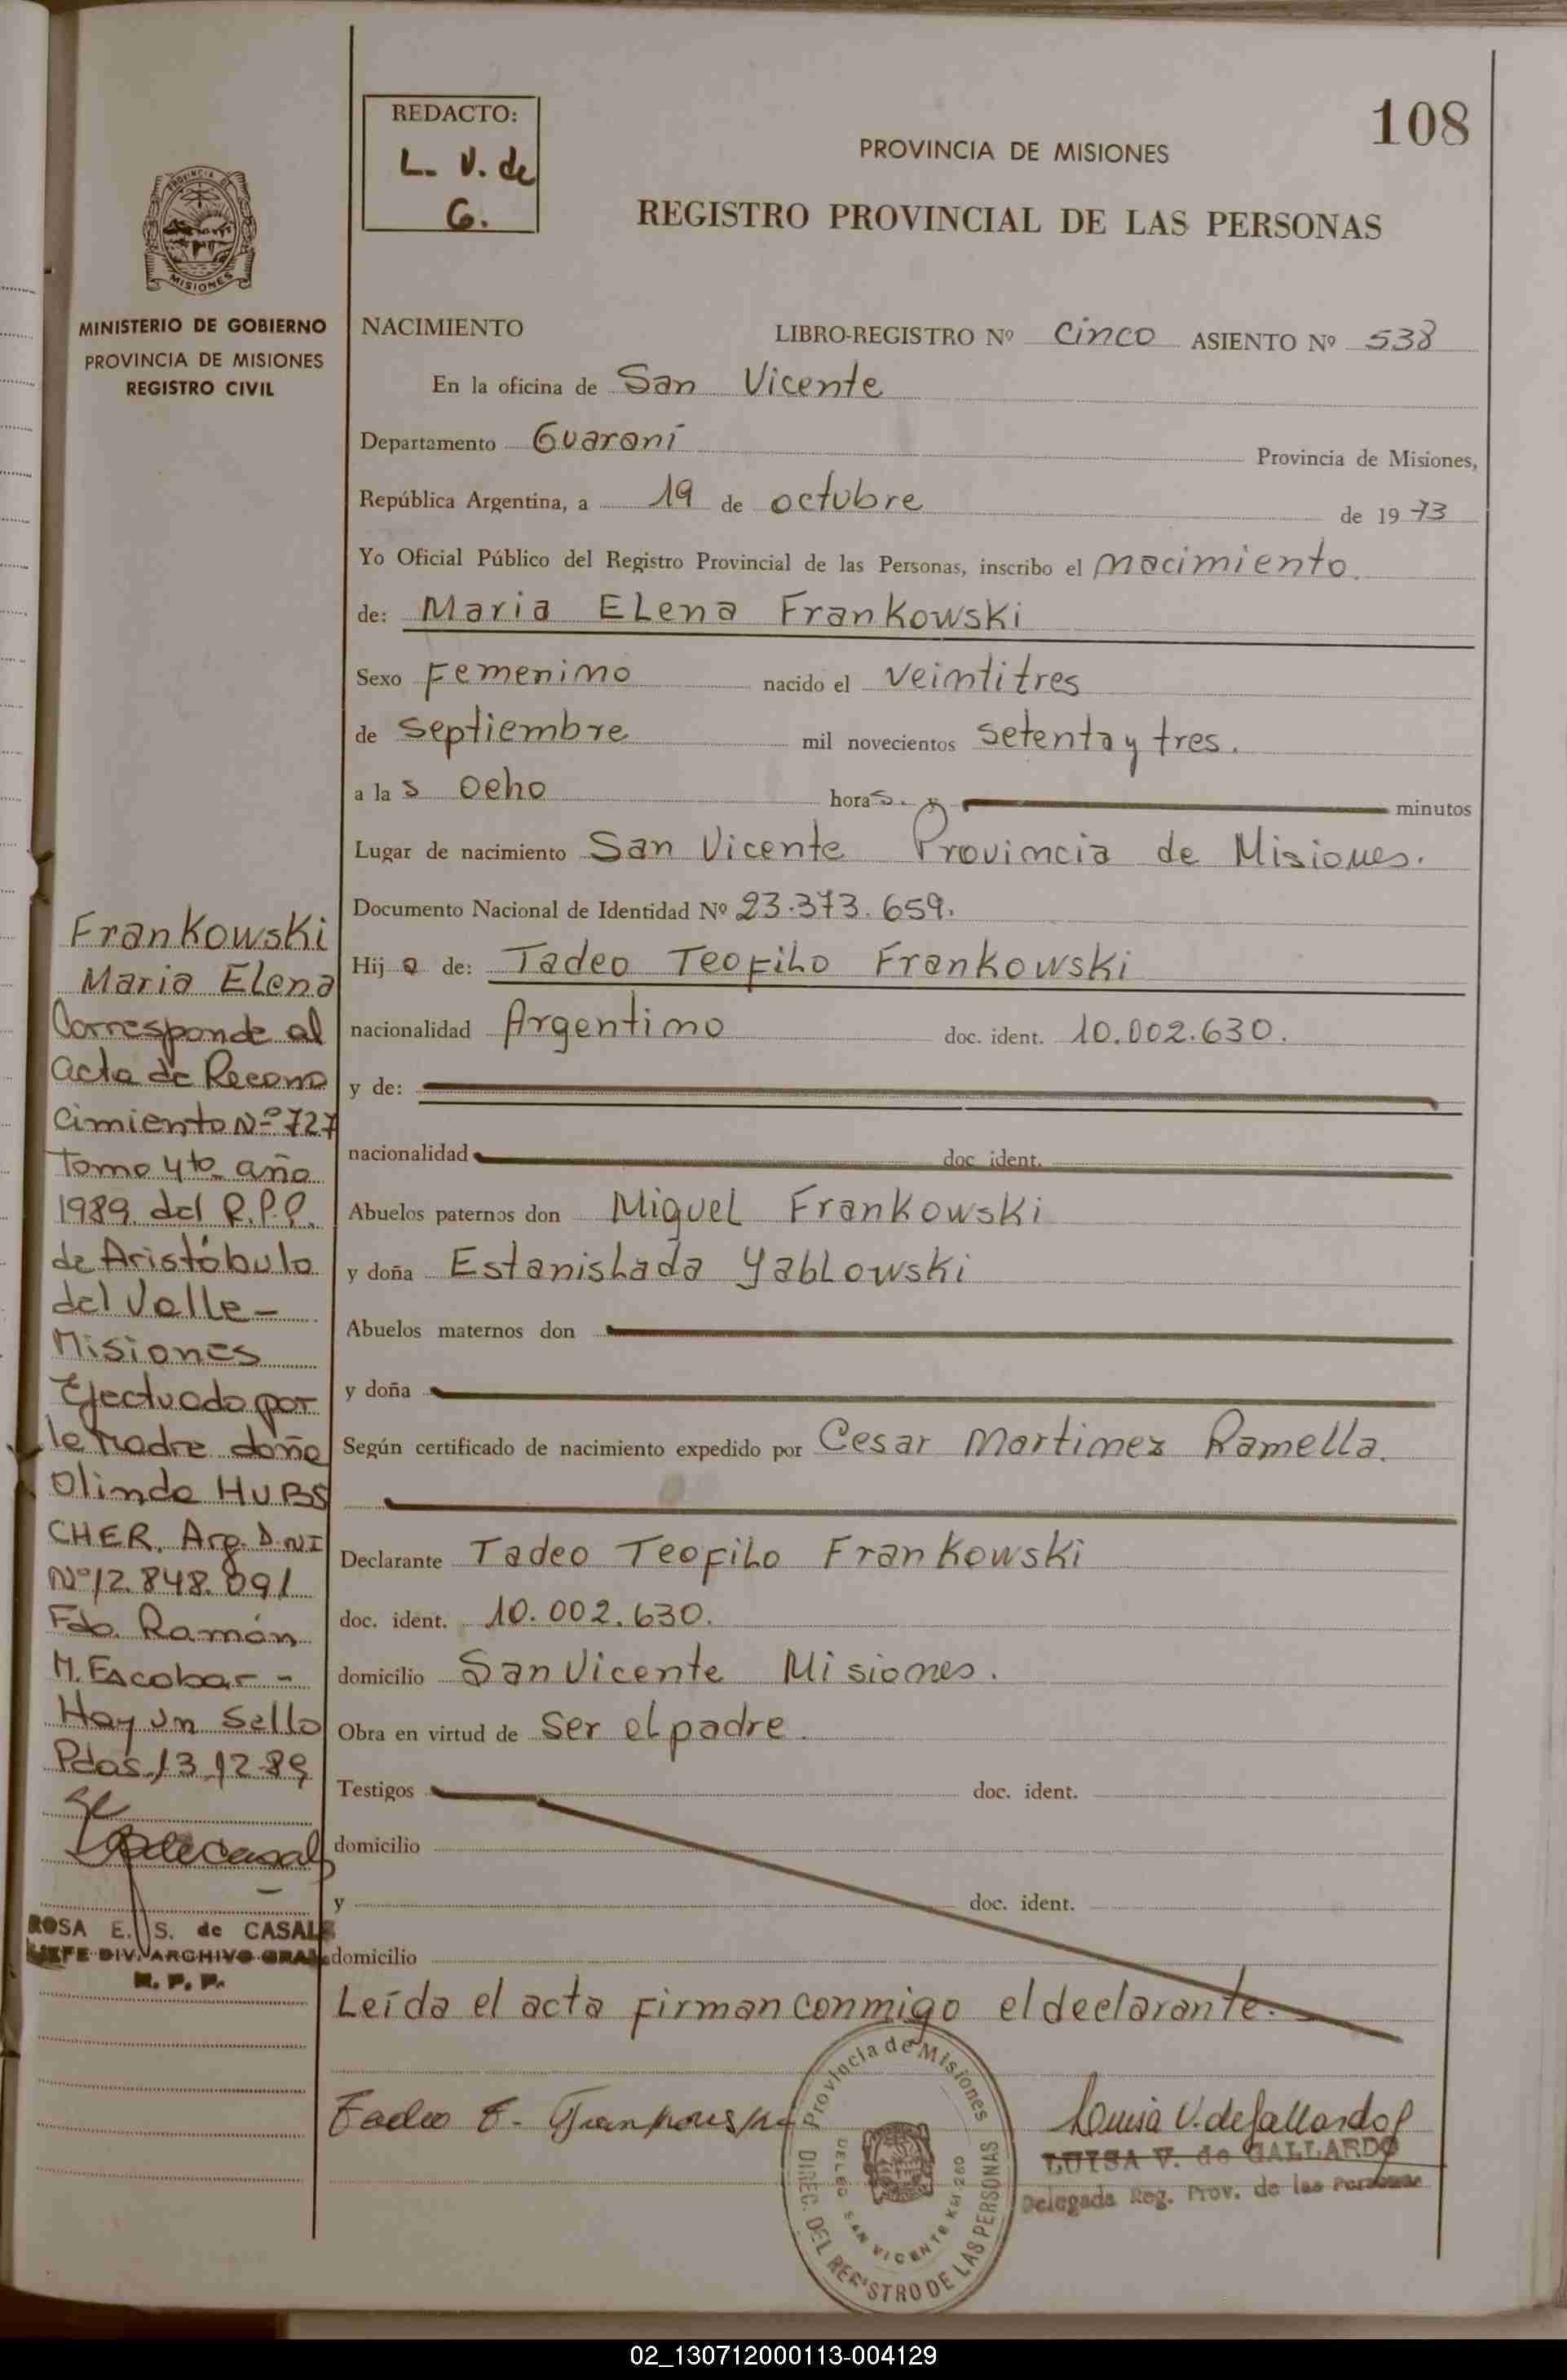 REDACTO:
L. V. de
G.
108
PROVINCIA DE MISIONES
REGISTRO PROVINCIAL DE LAS PERSONAS
PROVINCIA DE
MISIONES
MINISTERIO DE GOBIERNO
PROVINCIA DE MISIONES
REGISTRO CIVIL
NACIMIENTO LIBRO-REGISTRO Nº cinco ASIENTO Nº 538
En la oficina de San Vicente
Departamento Guaraní Provincia de Misiones,
República Argentina, a 19 de octubre de 1973
Yo Oficial Público del Registro Provincial de las Personas, inscribo el nacimiento.
de: Maria Elena Frankowski
Sexo Femenino nacido el veintitres
de septiembre mil novecientos setenta y tres.
a las ocho horas. y minutos
Lugar de nacimiento San Vicente Provincia de Misiones.
Documento Nacional de Identidad Nº 23.373.659.
Hija de: Tadeo Teofilo Frankowski
nacionalidad Argentino doc. ident. 10.002.630.
y de:
nacionalidad doc ident.
Abuelos paternos don Miguel Frankowski
y doña Estanislada Yablowski
Abuelos maternos don
y doña
Según certificado de nacimiento expedido por Cesar Martinez Ramella.
Declarante Tadeo Teofilo Frankowski
doc. ident. 10.002.630.
domicilio San Vicente Misiones.
Obra en virtud de ser el padre.
Testigos doc. ident.
domicilio
y doc. ident.
domicilio
Leída el acta firman conmigo el declarante.
Frankowski
Maria Elena
Corresponde al
acta de Recono
cimiento Nº 727
Tomo 4to año
1989 del R.P.P.
de Aristóbulo
del Valle -
Misiones
Efectuado por
la madre doña
Olinda HUBS
CHER. Arg. D.NI
Nº 12.848.091
Fdo. Ramón
H. Escobar -
Hay un sello
Pdas, 13 12-89
ROSA E. S. de CASALS
JEFE DIV. ARCHIVO GRAL.
R. P. P.
Tadeo T. Frankowski
Luisa V. de Gallardo
LUISA V. de GALLARDO
Delegada Reg. Prov. de las Personas
Provincia de Misiones
DIREC. DEL REGISTRO DE LAS PERSONAS
DELEG. SAN VICENTE KM 260
02_130712000113-004129